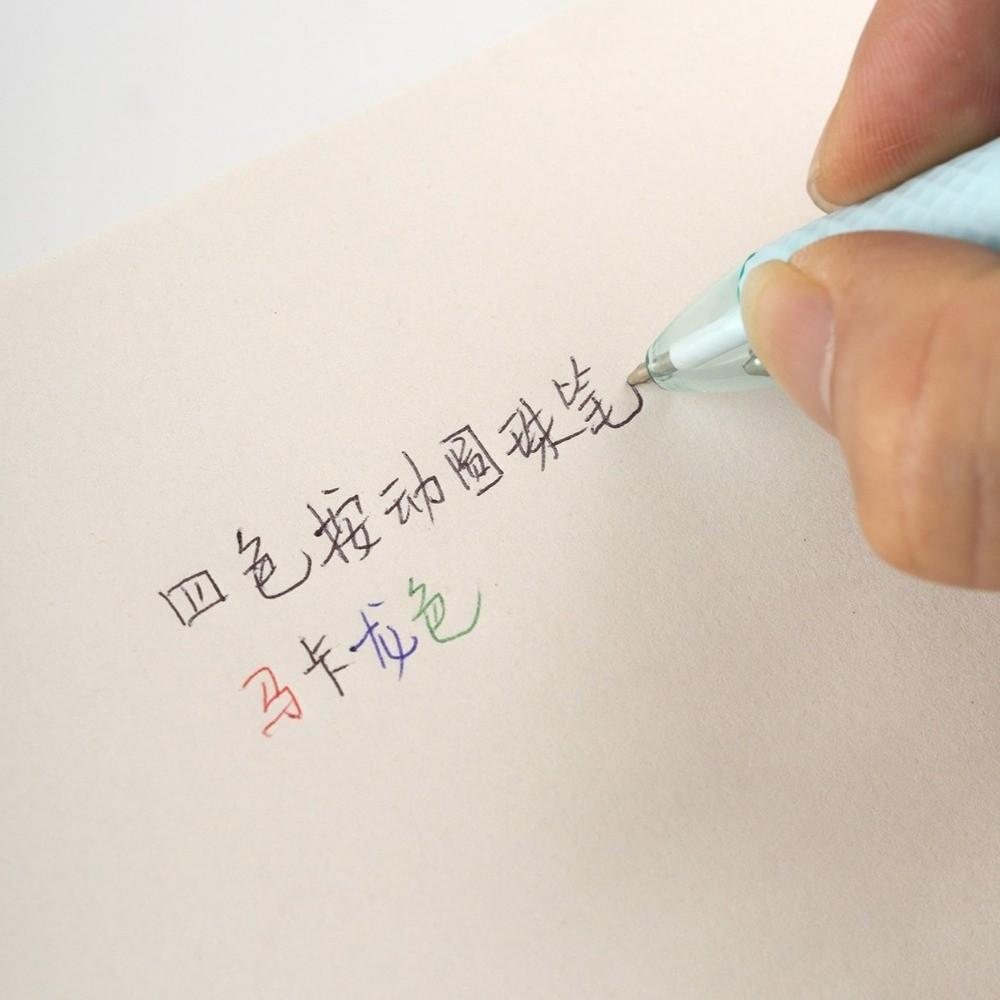 四色按动圆珠笔
马卡龙色